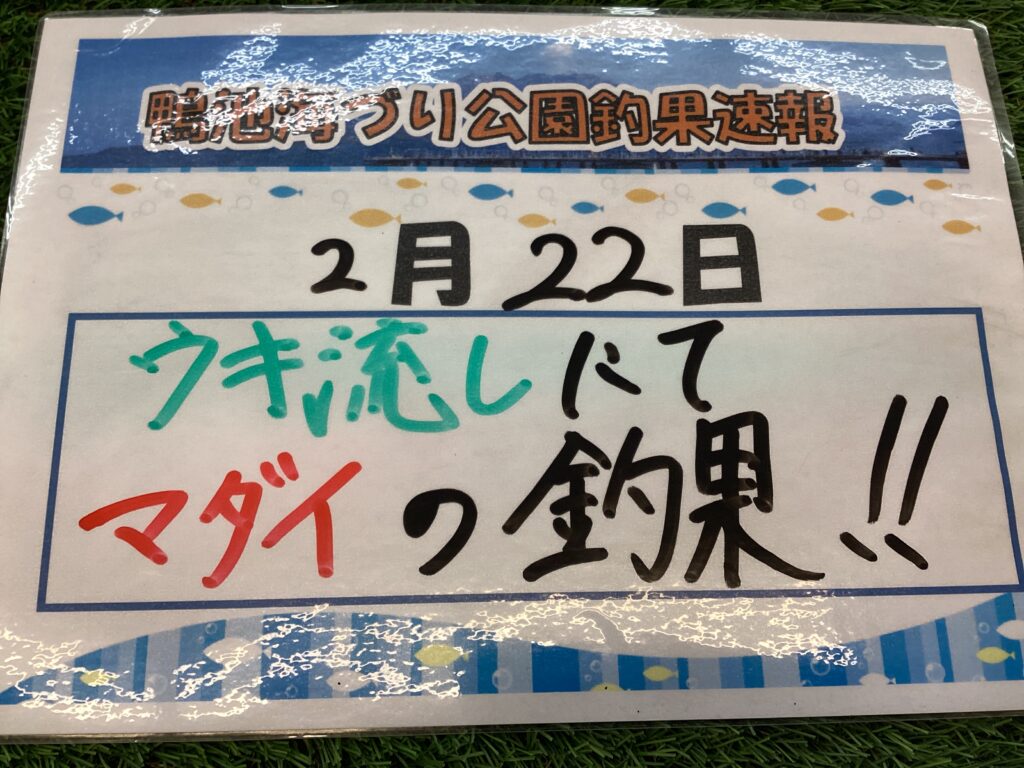 鴨池海づり公園釣果速報
2月22日
ウキ流しにて
マダイの釣果!!